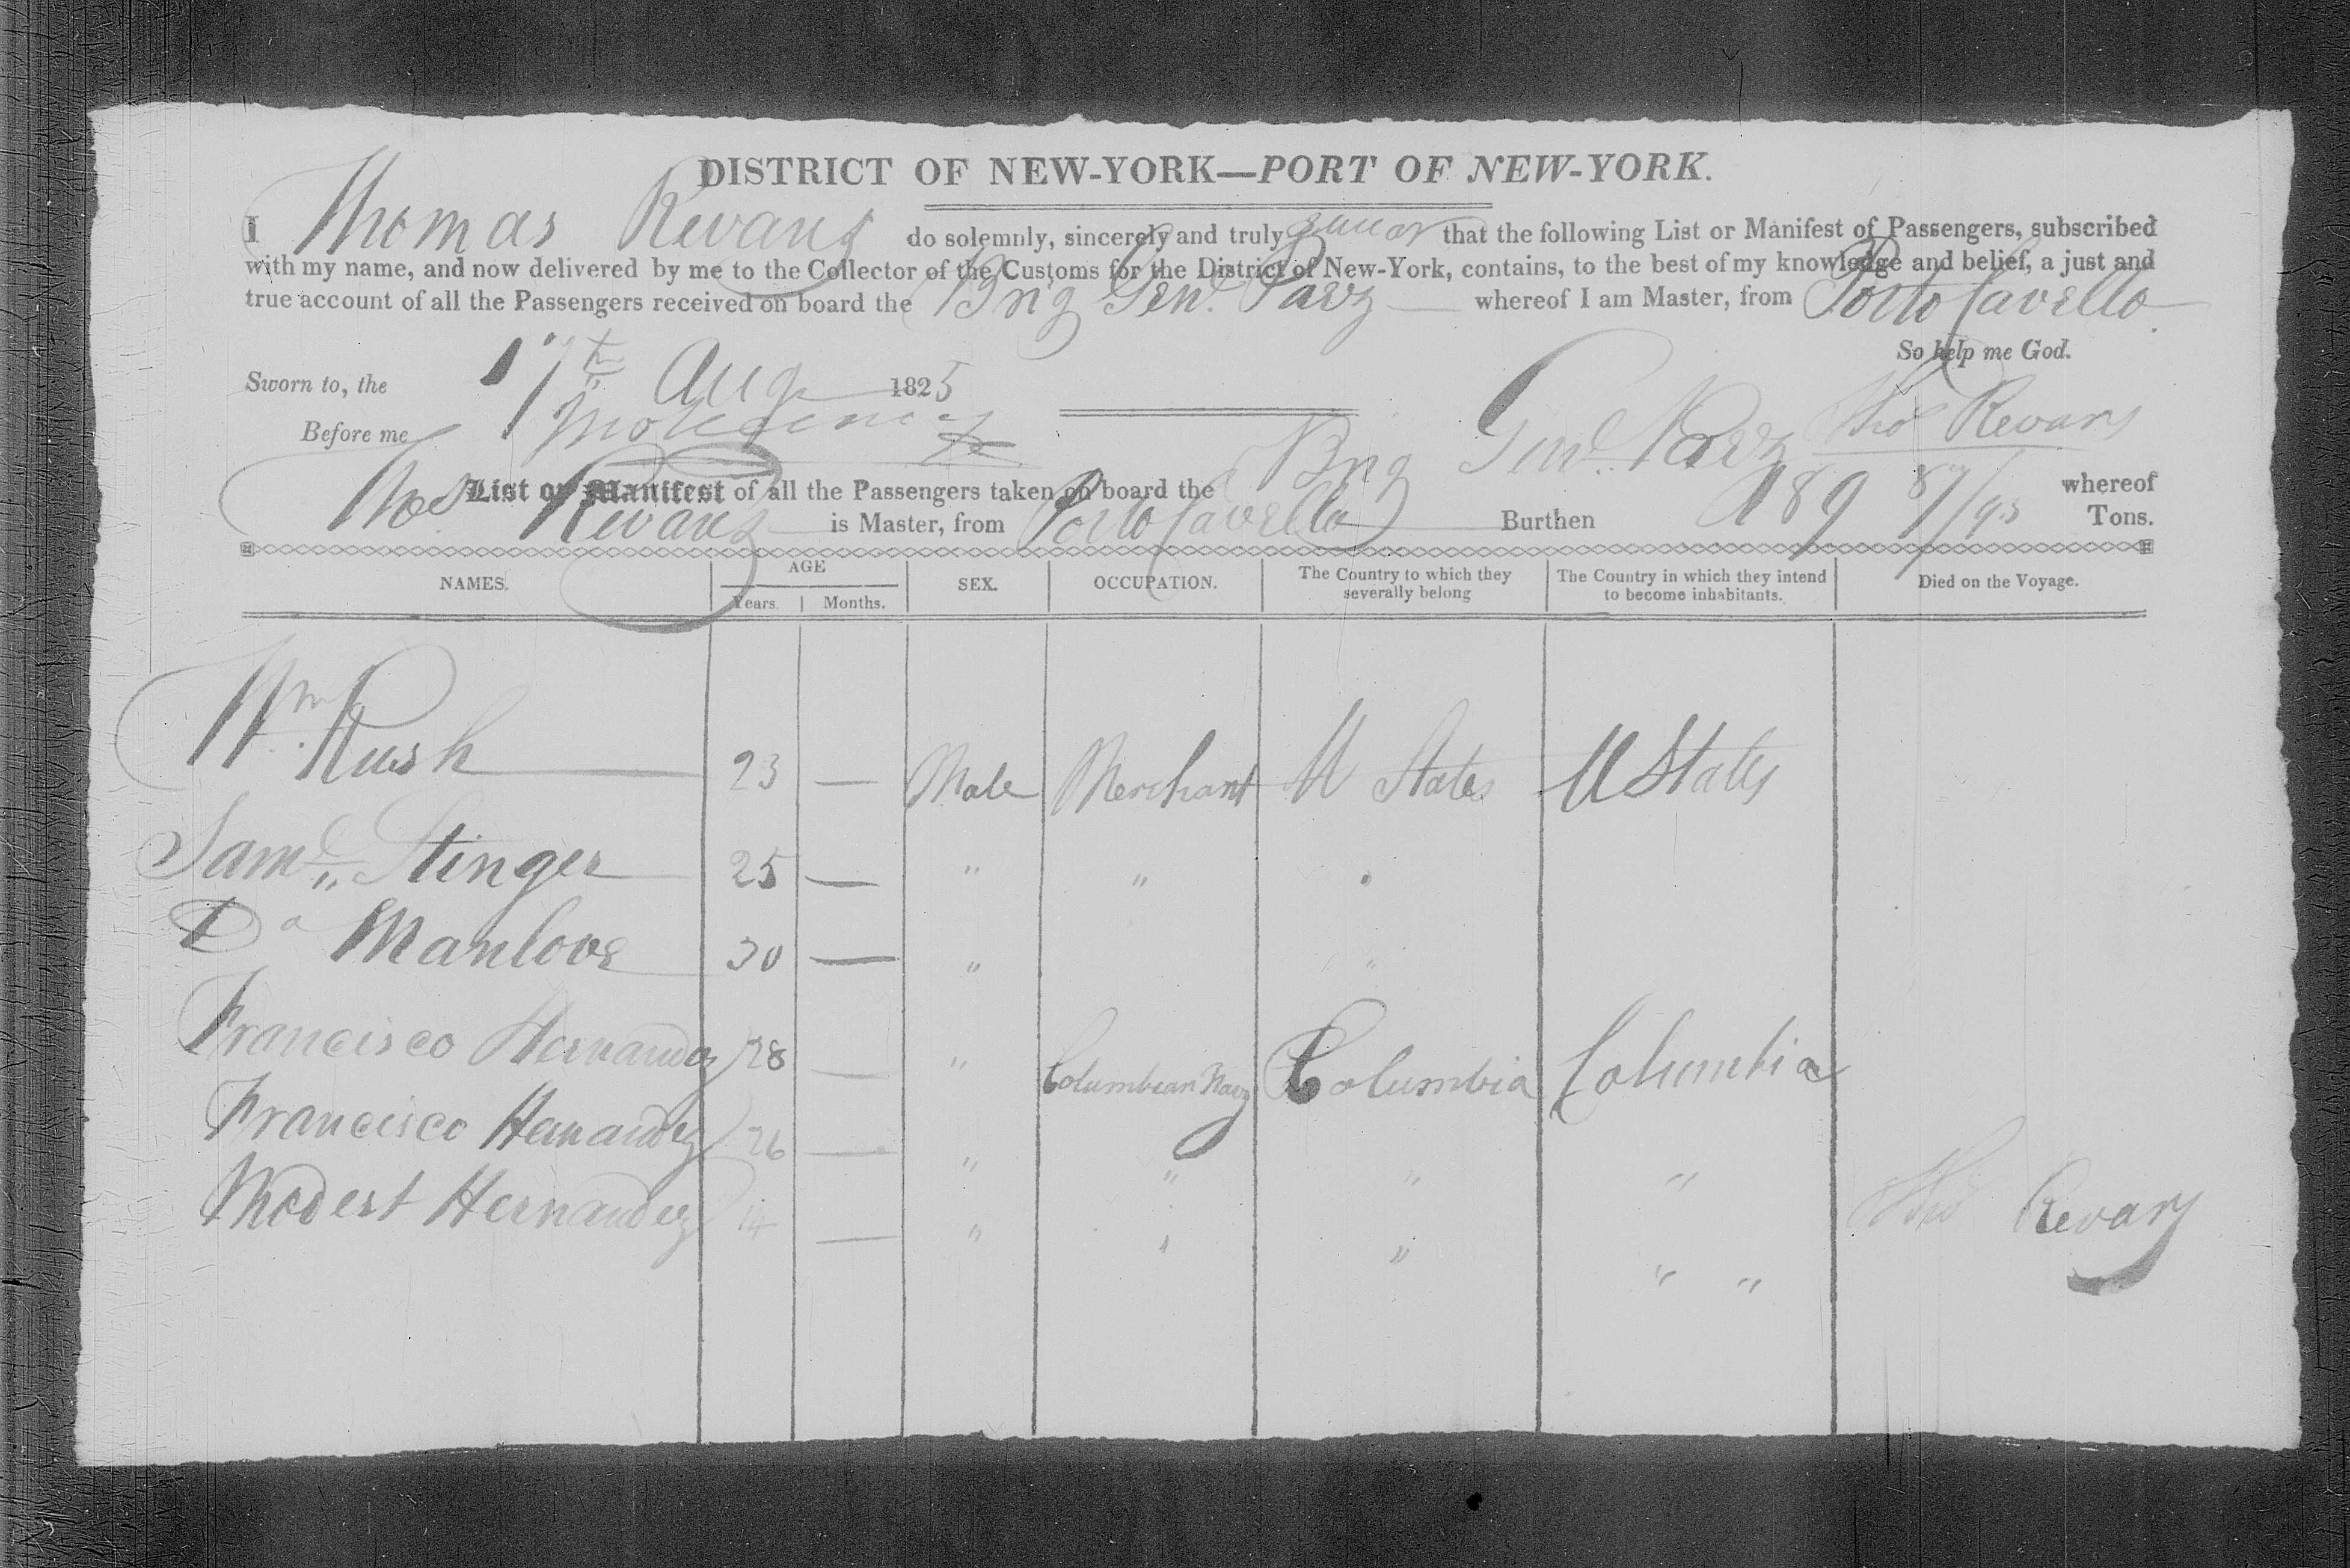 DISTRICT OF NEW-YORK—PORT OF NEW-YORK.
I Thomas Revans do solemnly, sincerely and truly swear that the following List or Manifest of Passengers, subscribed
with my name, and now delivered by me to the Collector of the Customs for the District of New-York, contains, to the best of my knowledge and belief, a just and
true account of all the Passengers received on board the Brig Genl. Paez whereof I am Master, from Porto Cavello
So help me God.
Sworn to, the 17th Aug 1825
Before me
Thos Revans
List or Manifest of all the Passengers taken on board the Brig Genl. Paez whereof
Thos Revans is Master, from Porto Cavello Burthen 189 87/95 Tons.
NAMES. AGE SEX. OCCUPATION. The Country to which they severally belong The Country in which they intend to become inhabitants. Died on the Voyage.
Years. Months.
Wm. Rush 23 — Male Merchant U States U States
Saml. Stinger 25 — " " "
Da Manlove 30 — " "
Francisco Hernandez 28 — " Columbian Navy Columbia Columbia
Francisco Hernandez 26 — " " " "
Modest Hernandez 14 — " " " " "
Thos Revans